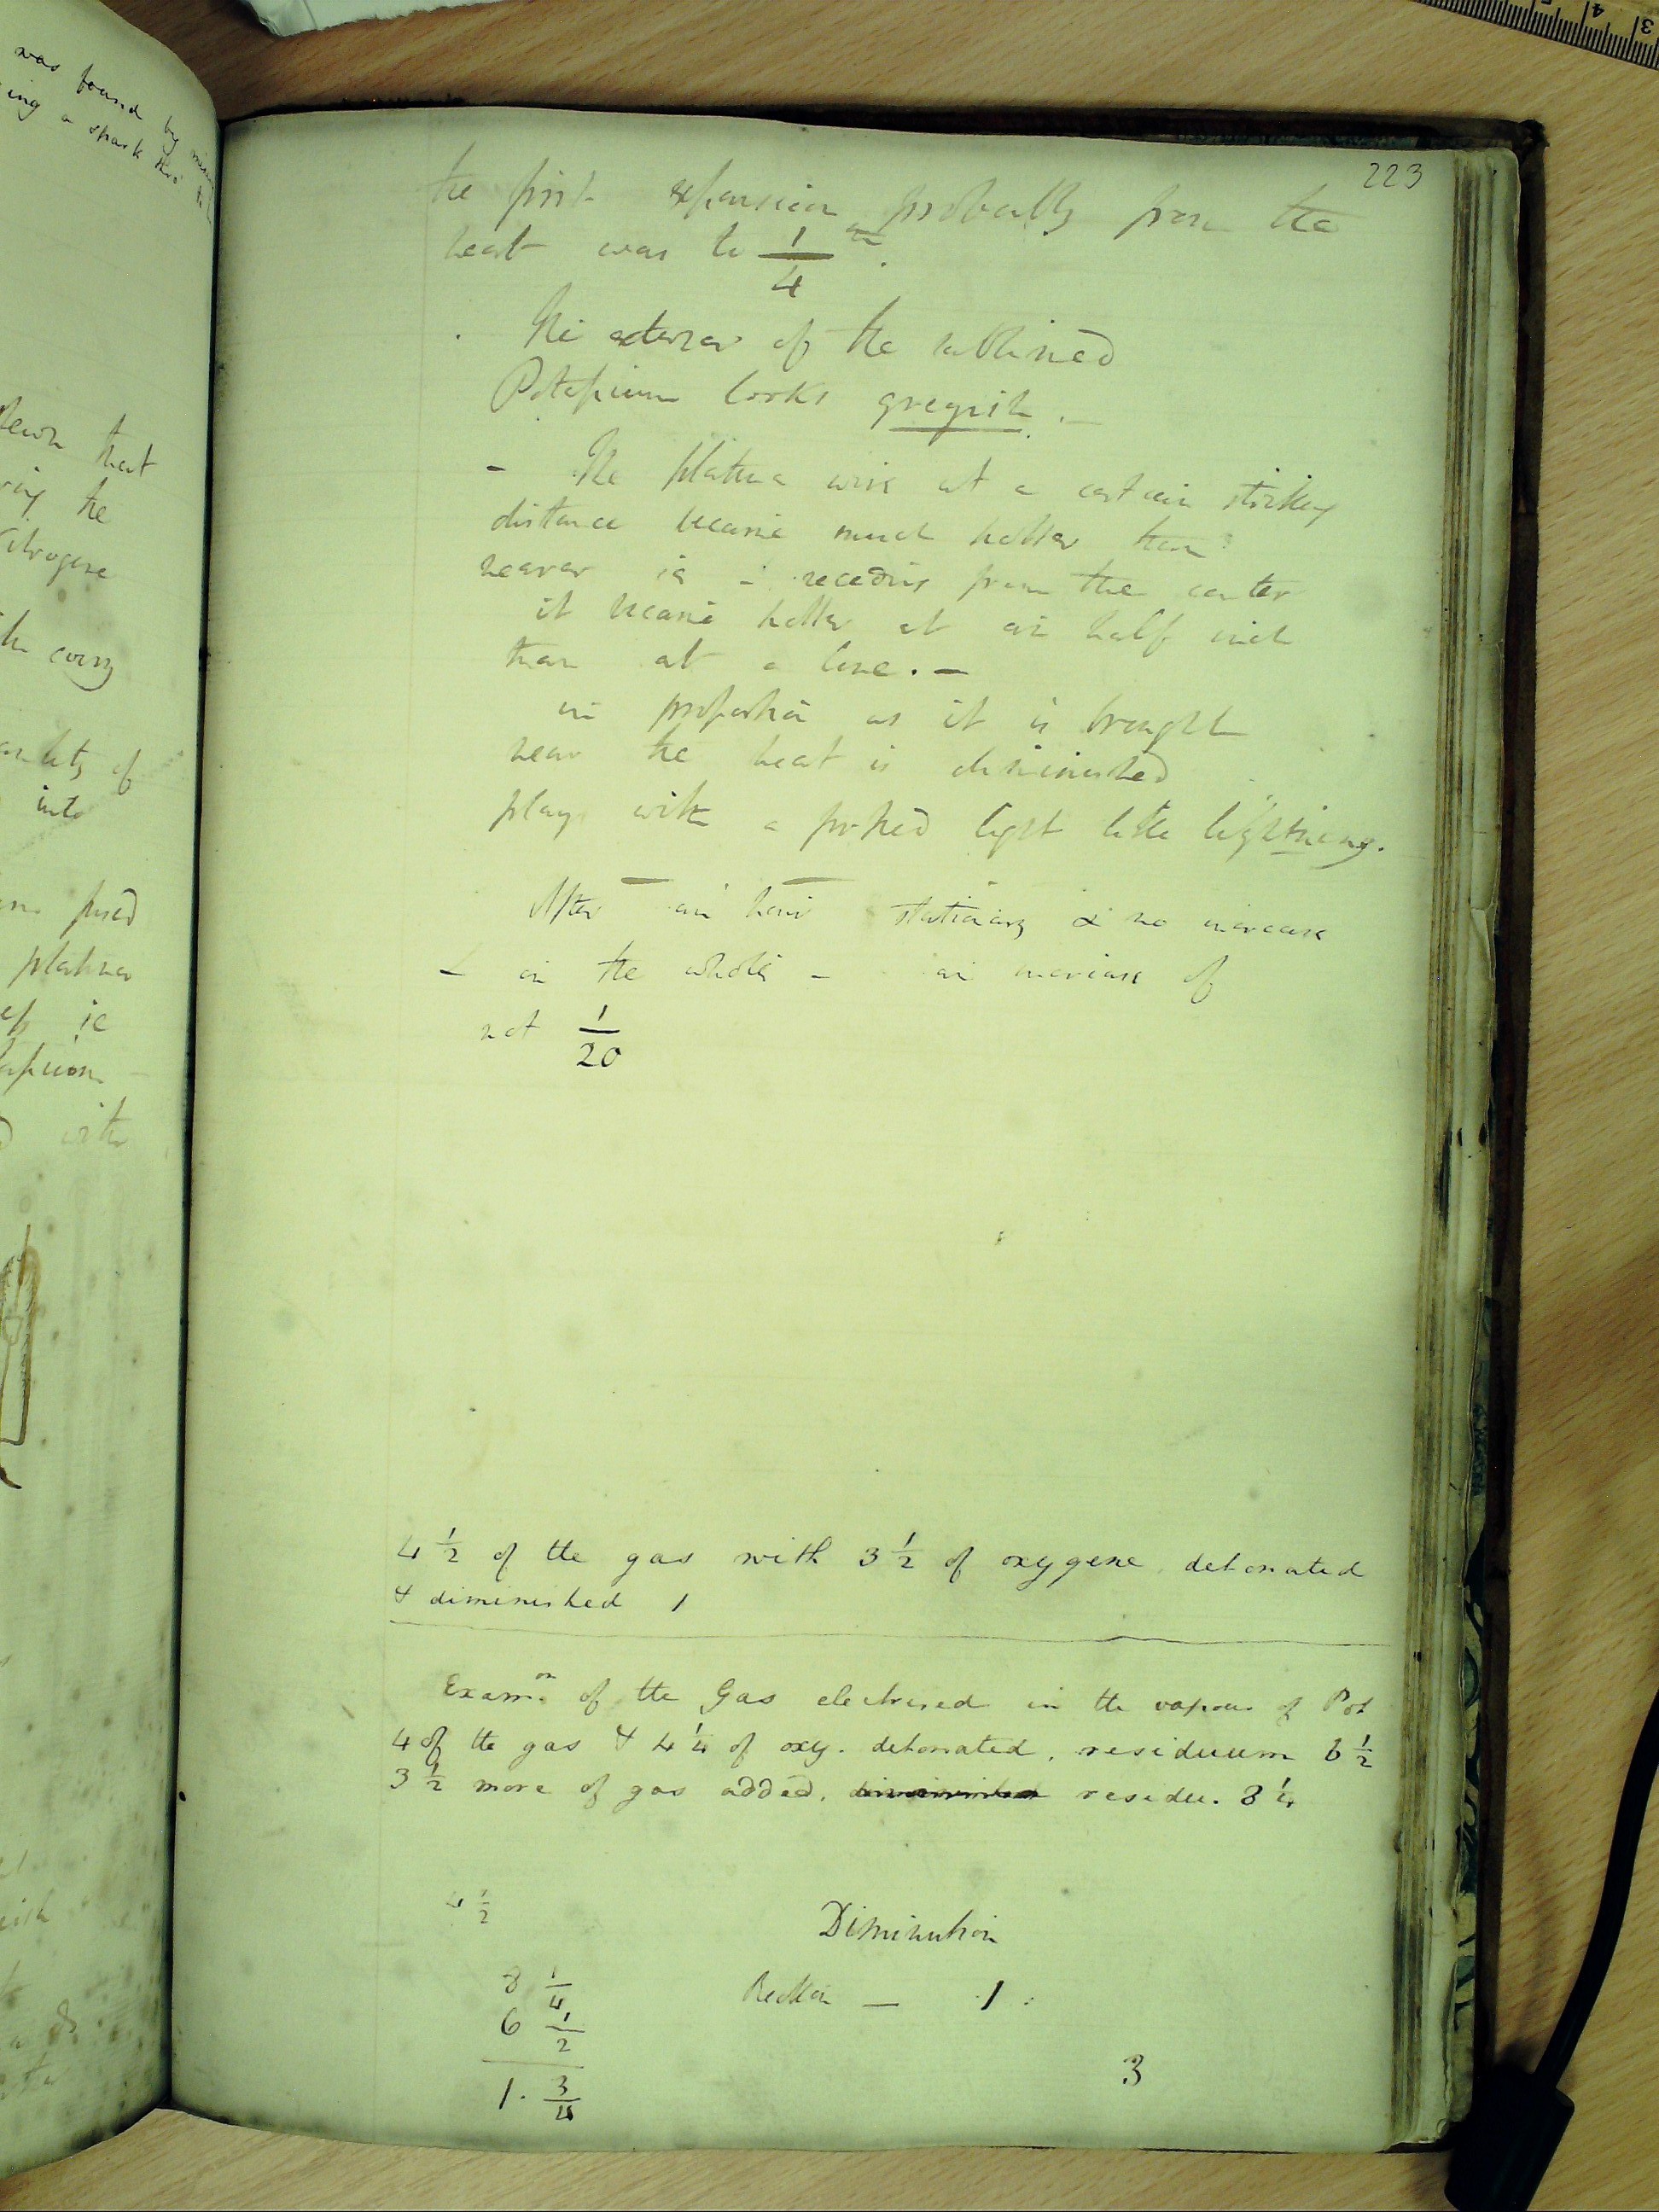 was found by
ing a spark thro' the
that
the
into
fused
platina
with
223
the first expansion probably from the
heat was to 1/4 th.
The exterior of the sublimed
Potassium looks greyish. —
- The platina wire at a certain striking
distance became much hotter than
nearer is - receding from the center
it became hotter at an half inch
than at a line. —
in proportion as it is brought
near the heat is diminished
plays with a forked light like lightning.
After an hour stationary & no increase
- in the whole - an increase of
not 1/20
4 1/2 of the gas with 3 1/2 of oxygene detonated
& diminished 1
Examon of the Gas electrised in the vapour of Pot
4 of the gas & 4 1/4 of oxy. detonated, residuum 6 1/2
3 1/2 more of gas added, diminished residu. 8 1/4
4 1/2
Diminution
8 1/4
— 1
6 1/2
1. 3/4
3